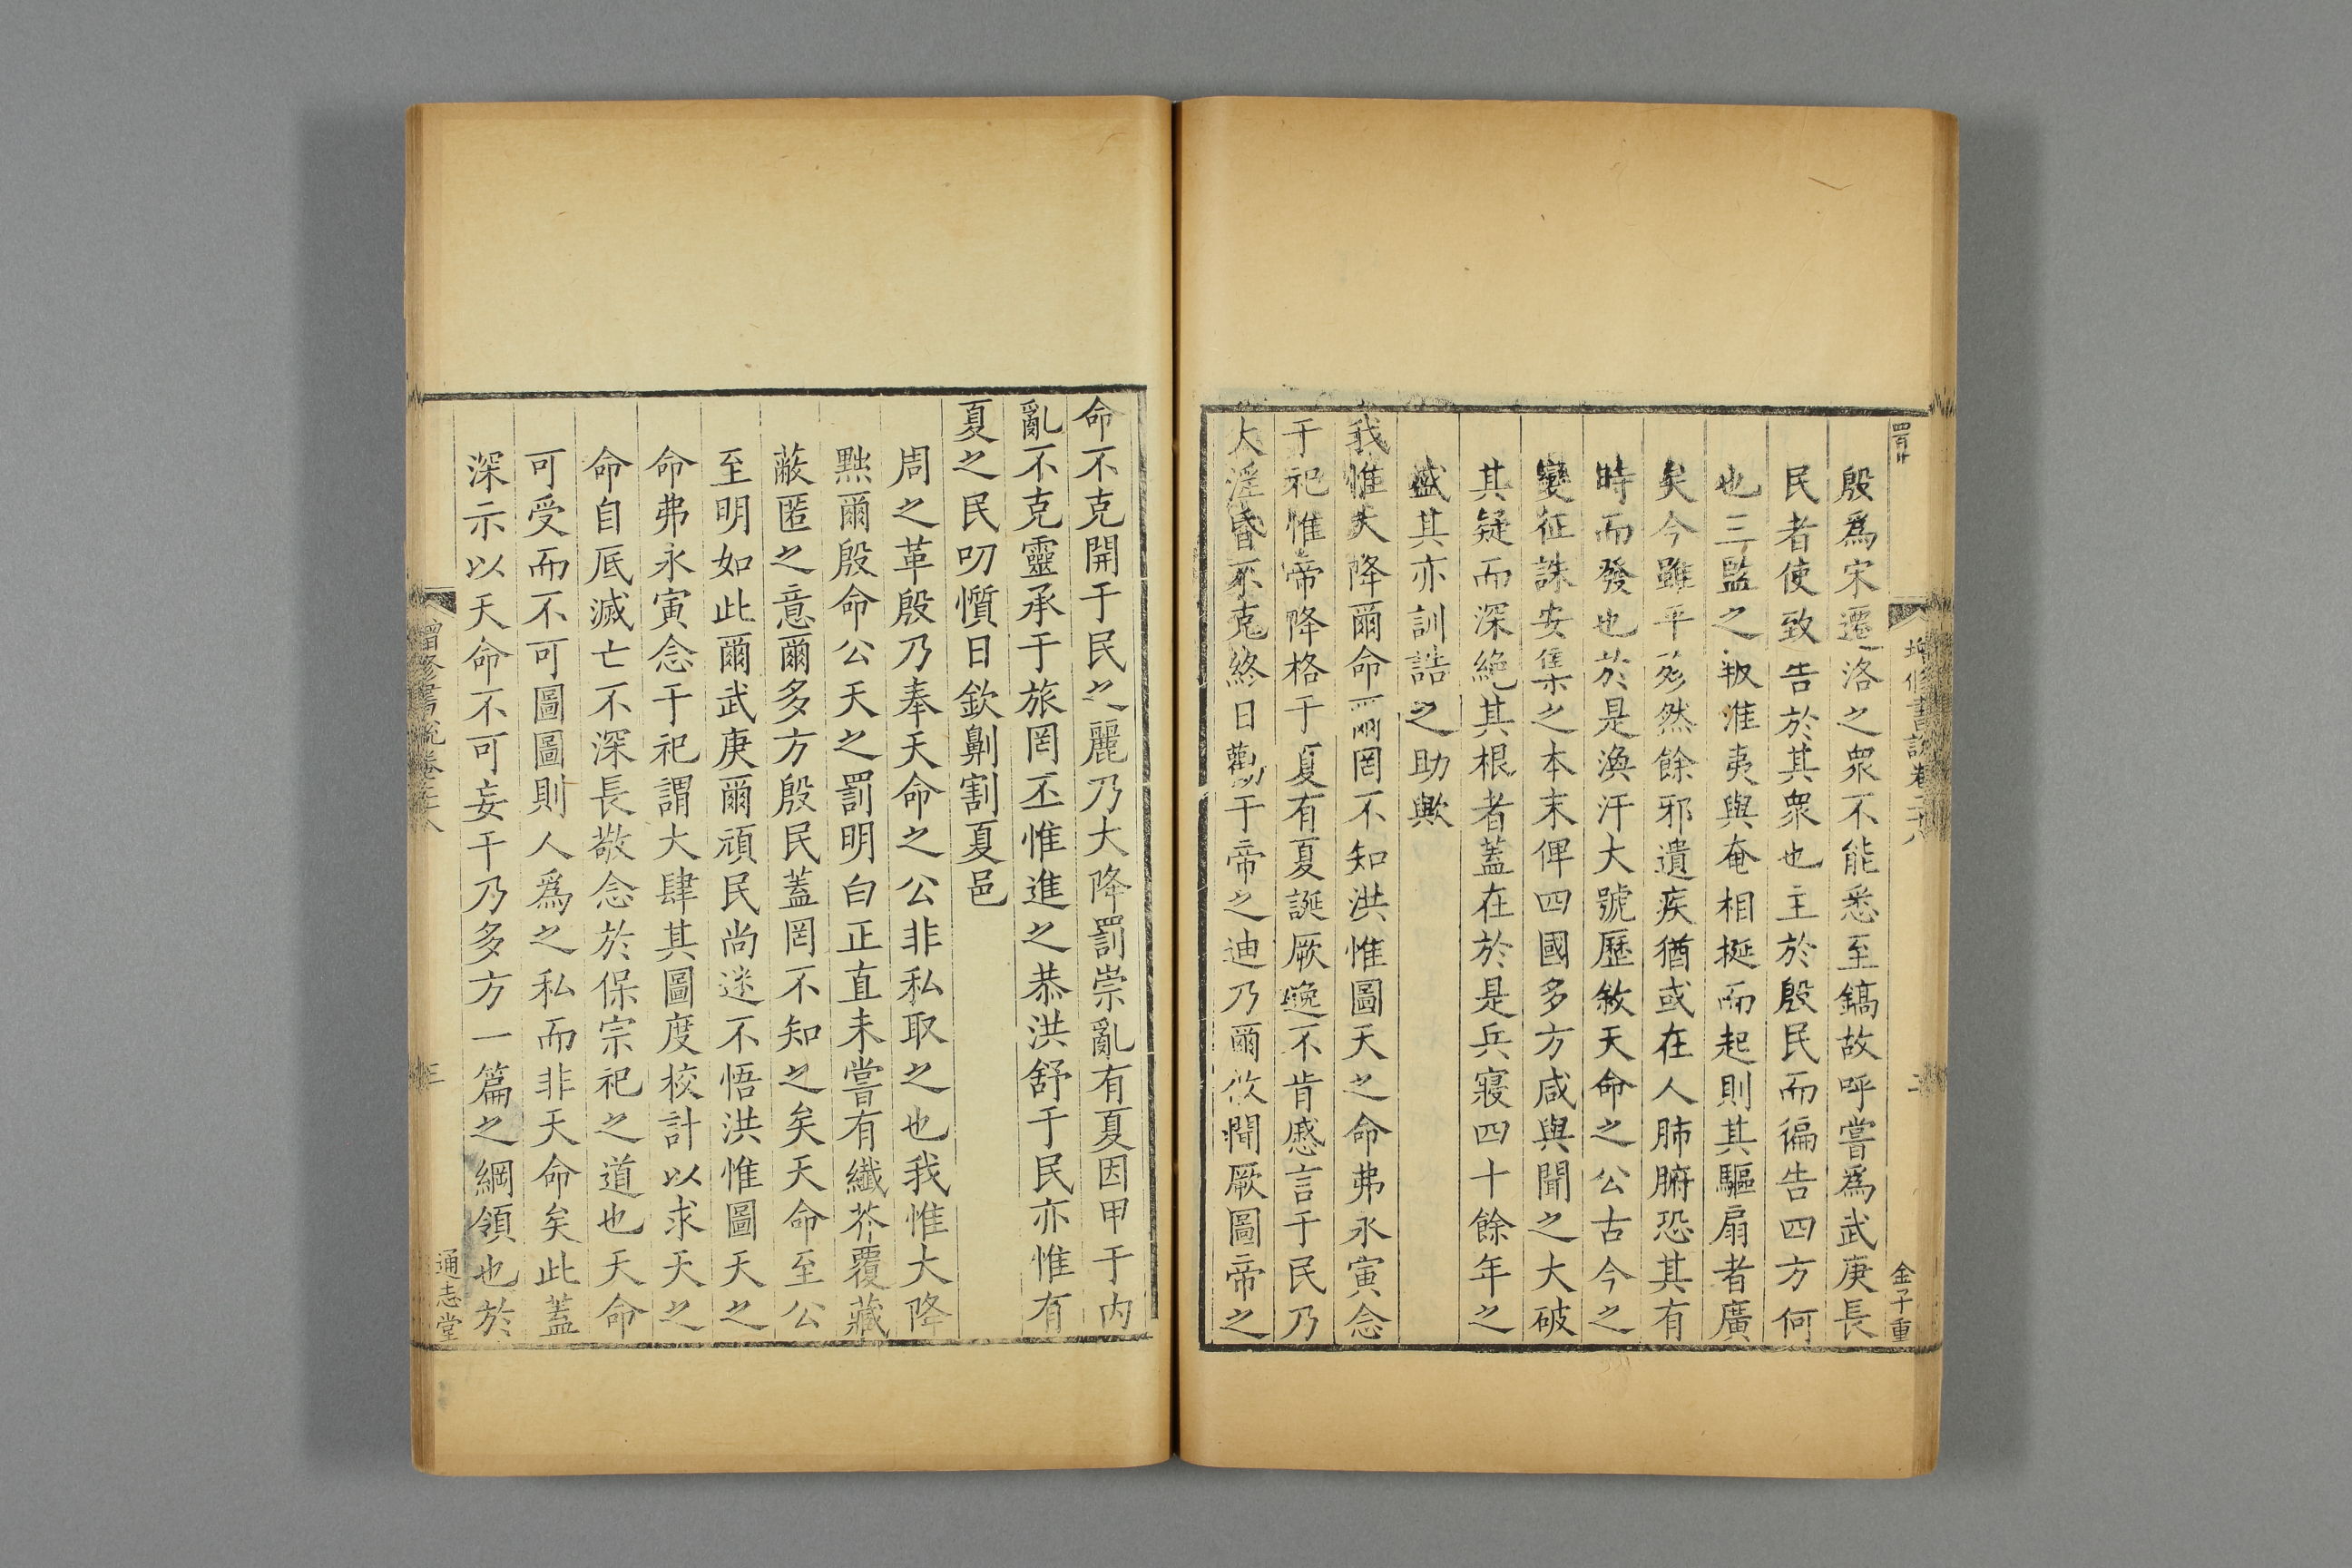 增修書說卷二十八
二
金子重
殷爲宋遷洛之衆不能悉至鎬故呼嘗爲武庚長
民者使致告於其衆也主於殷民而徧告四方何
也三監之叛淮夷與奄相挻而起則其驅扇者廣
矣今雖平殄然餘邪遺疾猶或在人肺腑恐其有
時而發也於是渙汗大號歷敘天命之公古今之
變征誅安集之本末俾四國多方咸與聞之大破
其疑而深絶其根者蓋在於是兵寢四十餘年之
盛其亦訓誥之助歟
我惟大降爾命爾罔不知洪惟圖天之命弗永寅念
于祀惟帝降格于夏有夏誕厥逸不肯慼言于民乃
大淫昏不克終日勸于帝之迪乃爾攸聞厥圖帝之
命不克開于民之麗乃大降罰崇亂有夏因甲于内
亂不克靈承于旅罔丕惟進之恭洪舒于民亦惟有
夏之民叨懫日欽劓割夏邑
周之革殷乃奉天命之公非私取之也我惟大降
黜爾殷命公天之罰明白正直未嘗有纖芥覆藏
蔽匿之意爾多方殷民蓋罔不知之矣天命至公
至明如此爾武庚爾頑民尚迷不悟洪惟圖天之
命弗永寅念于祀謂大肆其圖度校計以求天之
命自厎滅亡不深長敬念於保宗祀之道也天命
可受而不可圖圖則人爲之私而非天命矣此蓋
深示以天命不可妄干乃多方一篇之綱領也於
增修書說卷二十八
三
通志堂